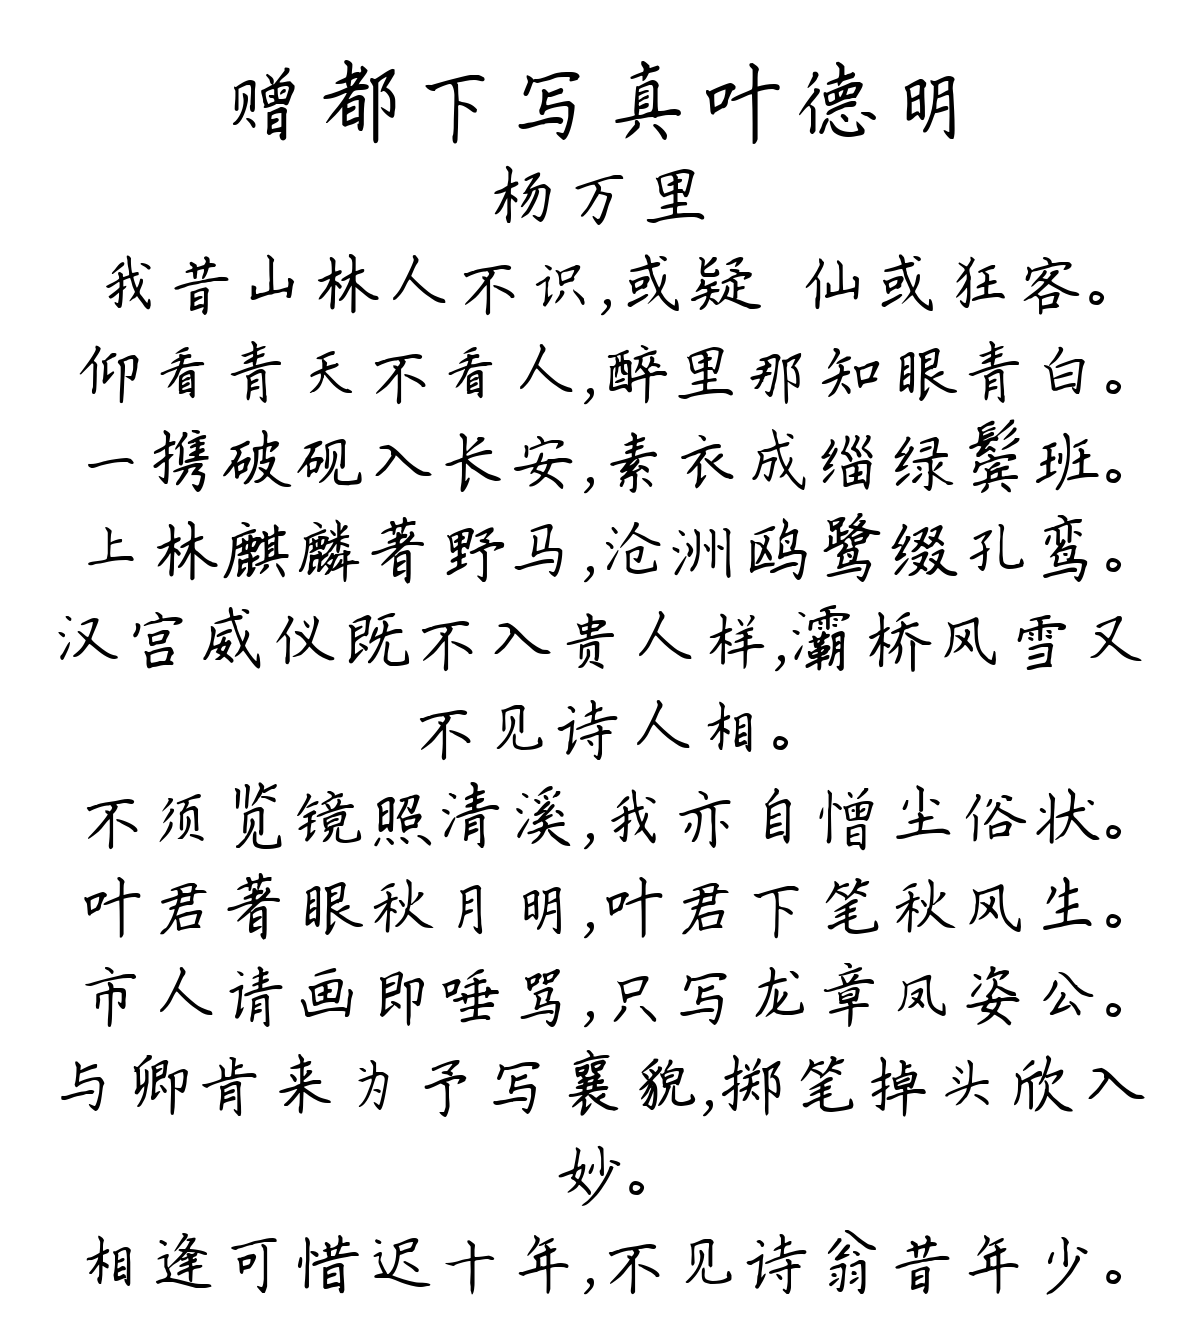 赠都下写真叶德明
杨万里
我昔山林人不识,或疑 仙或狂客。
仰看青天不看人,醉里那知眼青白。
一携破砚入长安,素衣成缁绿鬓班。
上林麒麟著野马,沧洲鸥鹭缀孔鸾。
汉宫威仪既不入贵人样,灞桥风雪又
不见诗人相。
不须览镜照清溪,我亦自憎尘俗状。
叶君著眼秋月明,叶君下笔秋风生。
市人请画即唾骂,只写龙章凤姿公。
与卿肯来为予写襄貌,掷笔掉头欣入
妙。
相逢可惜迟十年,不见诗翁昔年少。